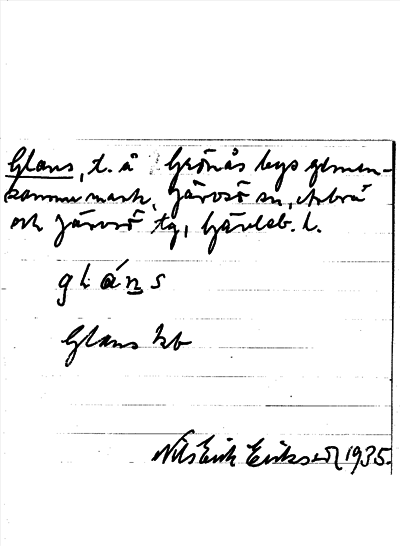 Glans, t. å Grönås bys gemen-
samma mark, Järvsö sn, Arbrå
och Järvsö tg, Gävleb. l.
gláns
Glans kb
Nils Erik Eriksson 1935.